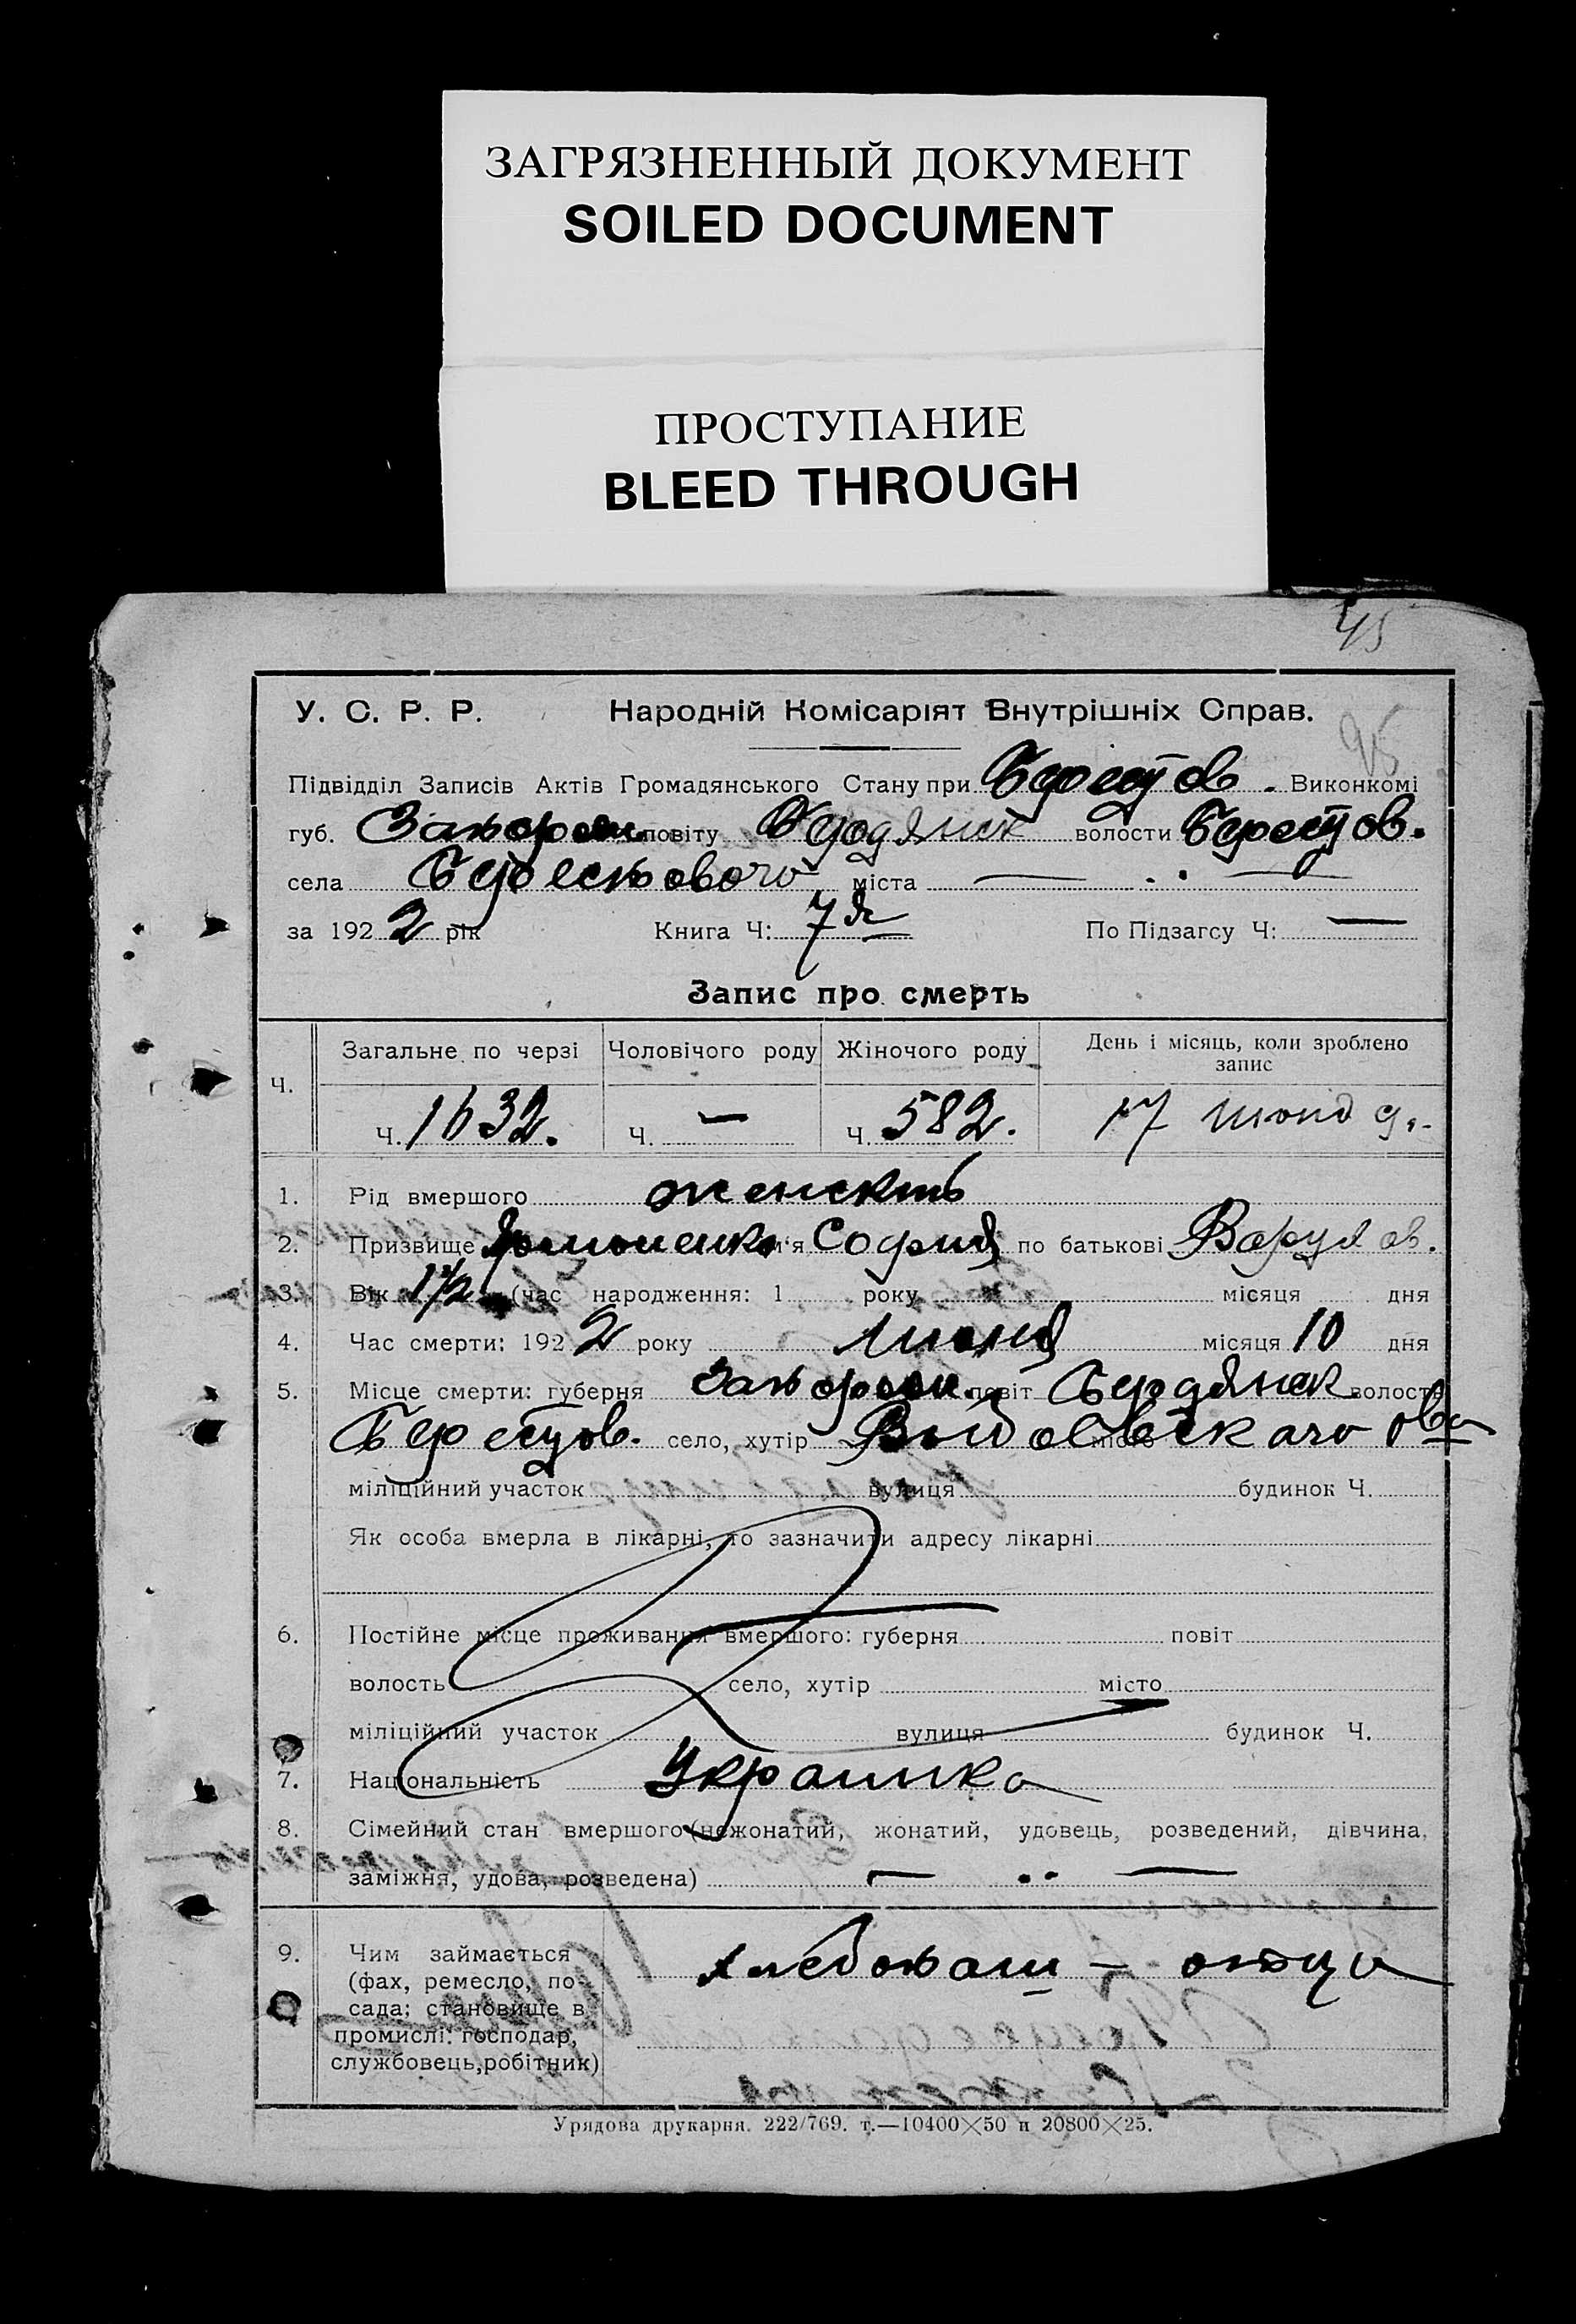 ЗАГРЯЗНЕННЫЙ ДОКУМЕНТ
SOILED DOCUMENT
ПРОСТУПАНИЕ
BLEED THROUGH
45
95
У. С. Р. Р. Народній Комісаріят Внутрішніх Справ.
Підвідділ Записів Актів Громадянського Стану при Берестов. Виконкомі
губ. Запорож. повіту Бердянск волости Берестов.
села Берестового міста — .. —
за 1922 рік Книга Ч: 7я По Підзагсу Ч: —
Запис про смерть
Ч. Загальне по черзі Чоловічого роду Жіночого роду День і місяць, коли зроблено запис
Ч. 1632. Ч. — Ч. 582. 17 июня
1. Рід вмершого женскть
2. Призвище м'я София по батькові
3. Вік 1½ (час народження: 1 року місяця дня
4. Час смерти: 1922 року июня місяця 10 дня
5. Місце смерти: губерня Запорож. повіт Бердянск волость
Берестов. село, хутір місто
міліційний участок вулиця будинок Ч.
Як особа вмерла в лікарні, то зазначити адресу лікарні
6. Постійне місце проживання вмершого: губерня повіт
волость село, хутір місто
міліційний участок вулиця будинок Ч.
7. Національність Украинка
8. Сімейний стан вмершого (нежонатий, жонатий, удовець, розведений, дівчина,
заміжня, удова, розведена) — .. —
9. Чим займається хлебопаш — отца
(фах, ремесло, по-
сада; становище в
промислі: господар,
службовець, робітник)
Урядова друкарня. 222/769. т.—10400×50 и 20800×25.